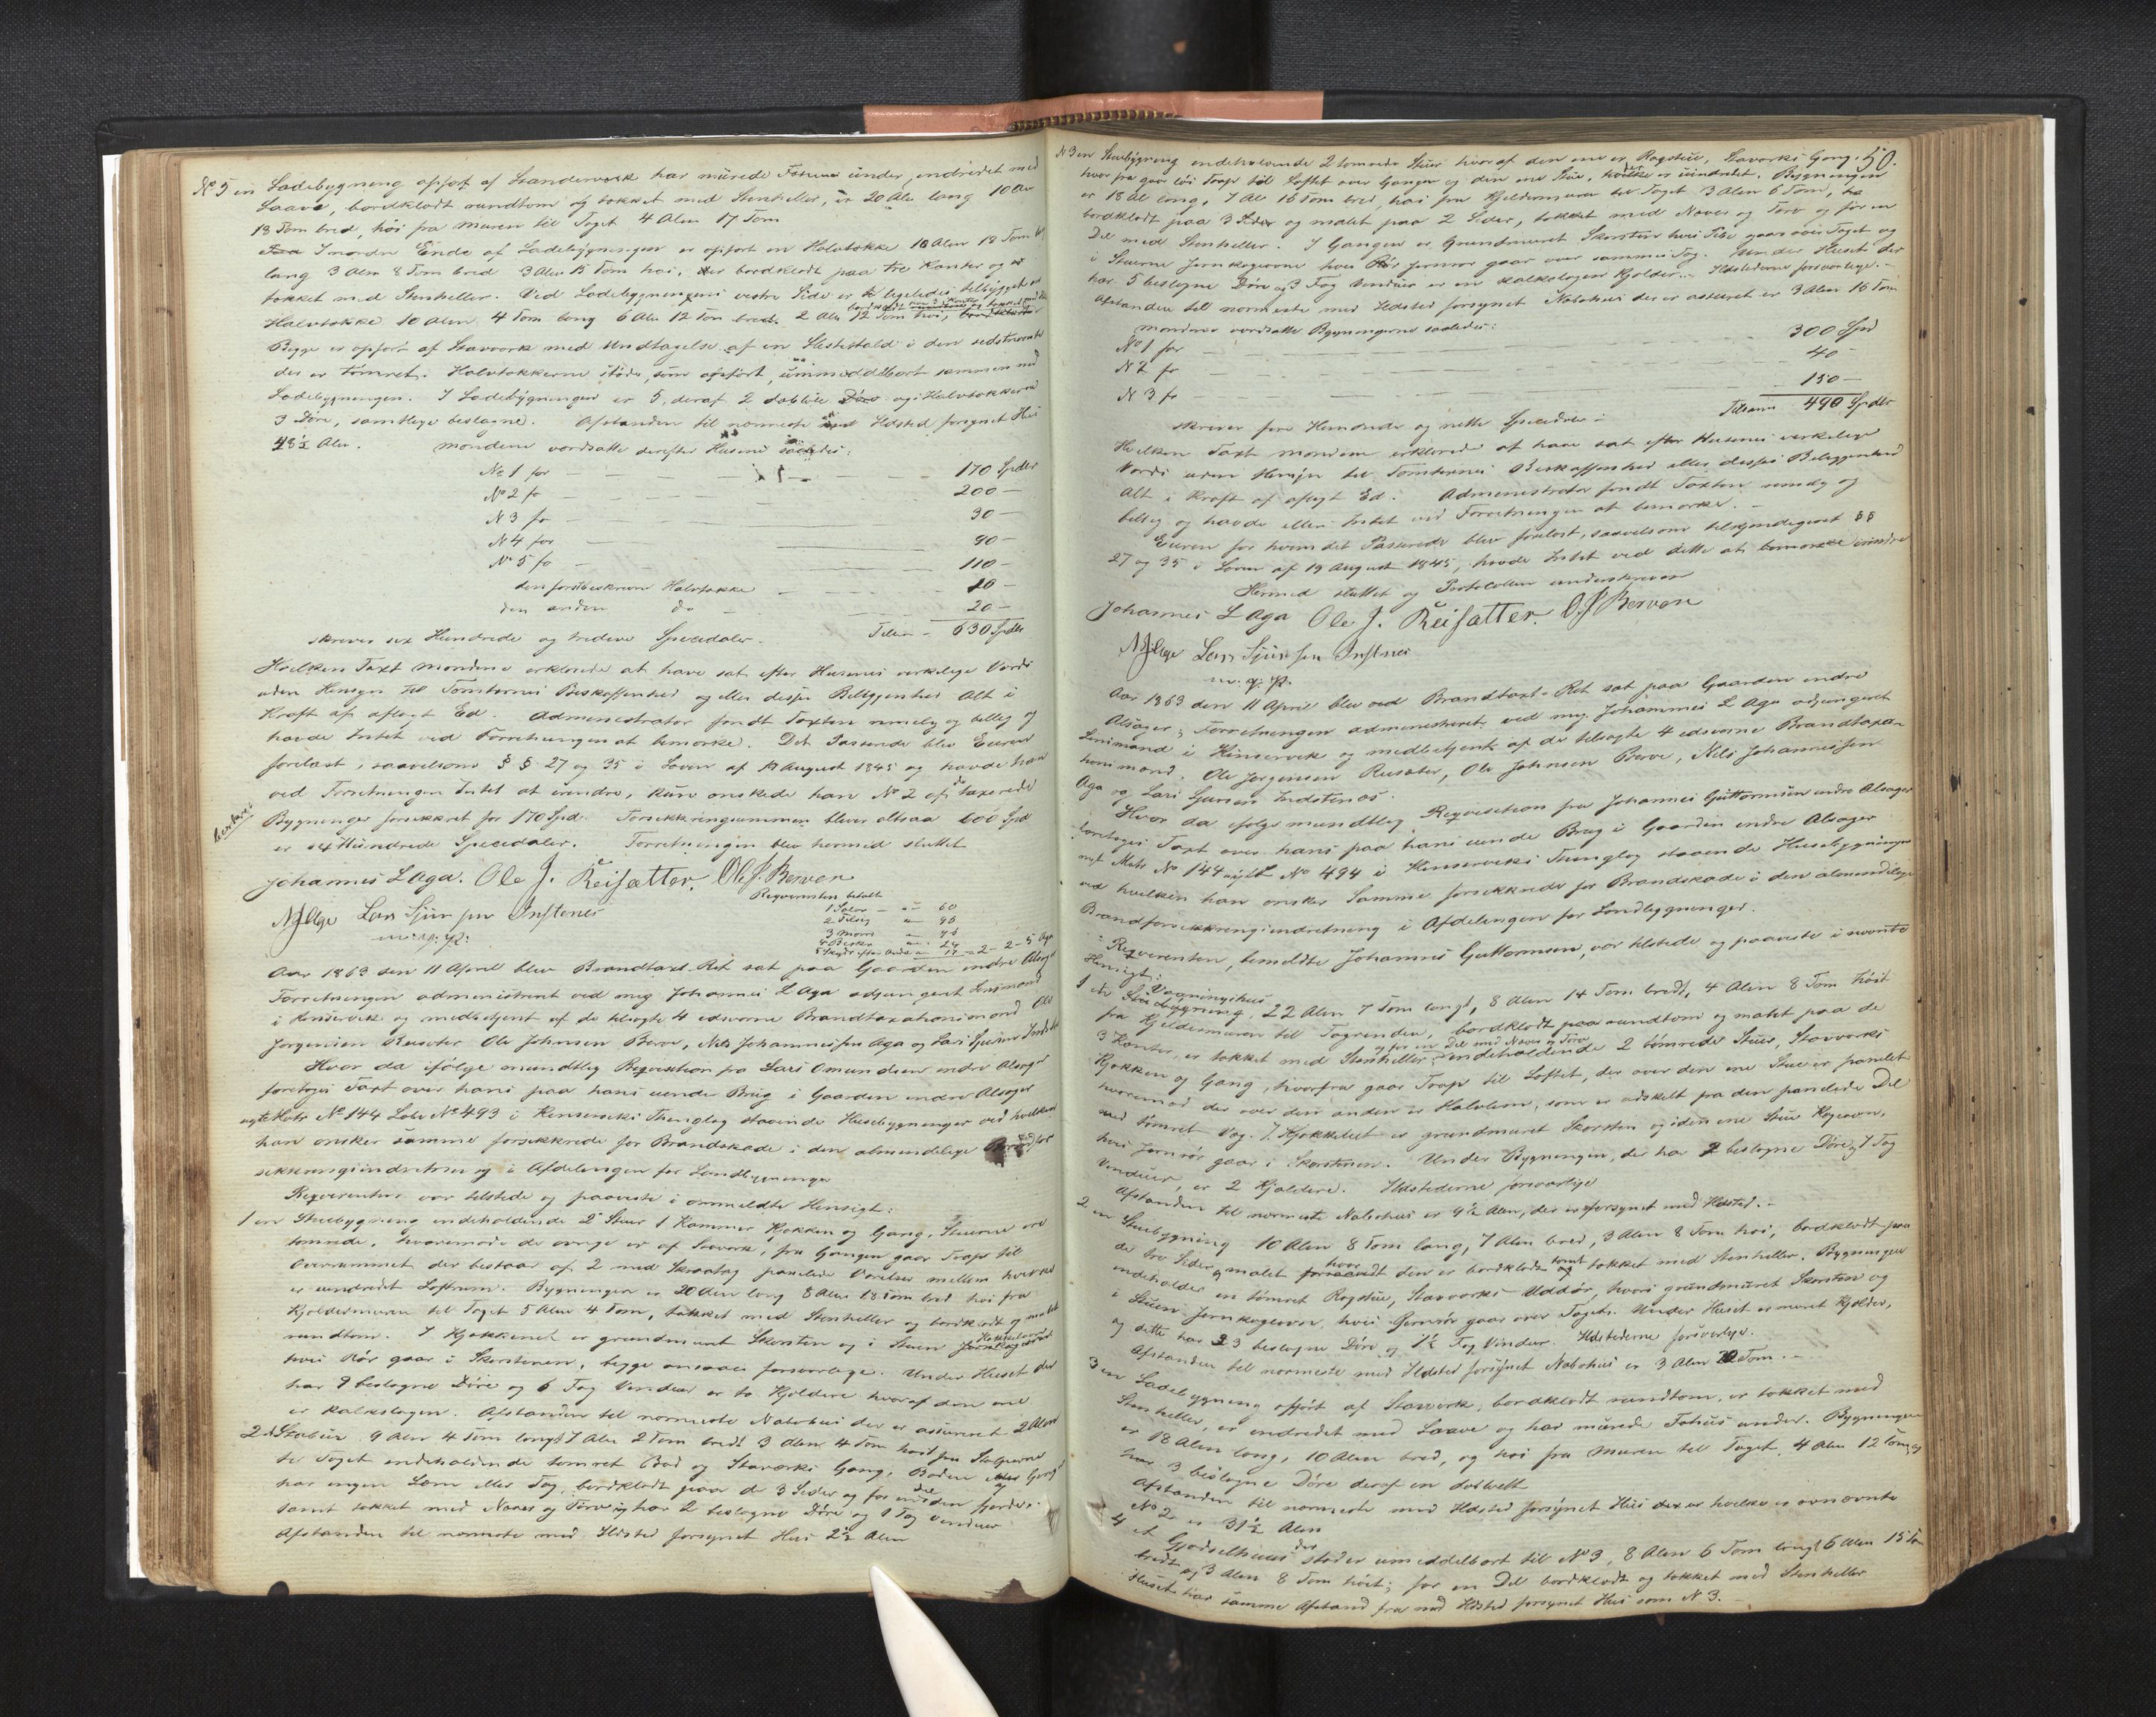 No 5 en Ladebygning opført af Standerværk har murede Føhuus under, indredet med
Laave, bordklædt rundtom og tækket med Stenheller, er 20 Alen lang 10 Alen
18 Tom bred, høi fra Muren til Taget 4 Alen 17 Tom
I nordre Ende af Ladebygningen er opført en Halvtække 10 Alen 18 Tom
lang 3 Alen 8 Tom bred 3 Alen 15 Tom høi, der bordklædt paa tre Kanter og
tækket med Stenheller. Ved Ladebygningens vestre Side er ligeledes tilbygget en
Halvtække 10 Alen 4 Tom lang 6 Alen 12 Tom bred 2 Alen 12 Tom høi,
Begge er opført af Stavværk med Undtagelse af en Hestestald i den sidstnævnte
der er tømret. Halvtækkerne støde, som opført, ummiddelbart sammen med
Ladebygningen. I Ladebygningen er 5, deraf 2 dobbele Døre og i Halvtækkerne
3 Døre, samtlige beslagne. Afstanden til nærmeste med Ildsted forsynet Hus
48½ Alen. Mændene værdsatte derefter Husene saaledes:
No 1 for — 170 Spdlr
No 2 for — 200 —
N 3 for — 30 —
N 4 for — 90 —
No 5 for — 110 —
den førstbeskrevne Halvtække — 10 —
den anden do — 20 —
skriver sex Hundrede og tredeve Speciedaler. Tilsam — 630 Spdlr
Hvilken Taxt Mændene erklærede at have sat efter Husenes verkelige Værdi
uden Hensyn til Tomternes Beskaffenhed og eller disses Beliggenhed Alt i
Kraft af aflagt Ed. Administrator fandt Taxten rimelig og billig og
havde Intet ved Forretningen at bemærke. Det Passerede blev Eieren
forelæst, saavelsom §§ 27 og 35 i Loven af 19 August 1845 og havde han
ved Forretningen Intet at erindre, kun ønskede han No 2 af de taxerede
Bygninger forsikkret for 170 Spd. Forsikkringssummen bliver altsaa 600 Spd
er sex Hundrede Speciedaler. Forretningen blev hermed sluttet
Johannes L Aga. Ole J. Reisæter. O. J. Berven
N J Aga Lars Sjursen Instenes
m. p. p.
Reqverenten betalt
Aar 1863 den 11 April blev Brandtaxt-Ret sat paa Gaarden indre Alsager
Forretningen administreret ved mig Johannes L Aga adjungeret Lensmand
i Kinservik og medbetjent af de tilsagte 4 edsvorne Brandtaxationsmænd Ole
Jørgensen Reisæter Ole Johnsen Berve, Nils Johannessen Aga og Lars Sjursen Indstenæs
Hvor da ifølge mundtlig Reqvisition fra Lars Omundsen indre Alsager
foretoges Taxt over hans paa hans eiende Brug i Gaarden indre Alsager
nyt Matr No 144 Løbe No 493 i Kinserviks Thinglag staaende Husebygninger ved hvilken
han ønsker samme forsikkrede for Brandskade i den almindelige Brandfor
sikkringsindretning i Afdelingen for Landbygninger
Reqverenten var tilstede og paaviste i ommeldte Hensigt:
1 en Stuebygning indeholdende 2 Stuer 1 Kammer Kjøkken og Gang, Stuerne ere
tømrede, hvoremode de øvrige er af Stavværk, fra Gangen gaar Trap til
Overrummet der bestaar af 2 med Skraatag panelede Værelser mellem hvilke
er uindredet Loftrum. Bygningen er 20 Alen lang 8 Alen 18 Tom bred høi fra
Kjeldermuren til Taget 5 Alen 4 Tom, tækket med Stenheller og bordklædt og malet
rundtom. I Kjøkkenet er grundmuret Skorsten og i Stuen Kakkelovn
hvis Rør gaar i Skorstenen, begge ansaaes forsvarlige. Under Huset der
har 9 beslagne Døre og 6 Fag Vinduer er to Kjeldere hvoraf den ene
er kalkslagen. Afstanden til nærmeste Nabohus der er assureret 2 Alen
2 et Stabur 9 Alen 4 Tom langt 7 Alen 2 Tom bredt 3 Alen 4 Tom høit fra Stolperne
til Taget indeholdende tømret Bod og Stavværks Gang, Boden og Gang
har ingen Læm eller Tag, bordklædt paa de 3 Sider og for en Del den fjerde
samt tækket med Næver og Tørv og har 2 beslagne Døre og 1 Fag Vinduer
Afstanden til nærmeste med Ildsted forsynet Hus 2½ Alen
50.
N 3 en Stuebygning indeholdende 2 tømrede Stuer hvoraf den ene er Røgstue, Stavværks Gang,
hvor fra gaar løs Trap til Loftet over Gangen og den ene Stue, hvilket er uindredet. Bygningen
er 18 Al lang, 7 Al 16 Tom bred, høi fra Kjeldermuren til Taget 3 Alen 6 Tom,
bordklædt paa 3 Sider og malet paa 2 Sider, tækket med Næver og Tørv og for en
Del med Stenheller. I Gangen er Grundmuret Skorsten hvis Pibe gaar over Taget og
i Stuerne Jernkogeovne hvis Rør Jernrør gaar over samme Tag. Under Huset der
har 5 beslagne Døre og 3 Fag Vinduer er en kalkslagen Kjelder. Ildstederne forsvarlige. —
Afstanden til nærmeste med Ildsted forsynet Nabohus der er assureret er 3 Alen 16 Tom
Mændene værdsatte Bygningerne saaledes:
No 1 for — 300 Spd
N 2 for — 40 —
N 3 for — 150 —
Tilsam — 490 Spdlr
skriver fire Hundrede og nitti Speciedaler —
Hvilken Taxt Mændene erklærede at have sat efter Husenes verkelige
Værdi uden Hensyn til Tomternes Beskaffenhed eller disses Beliggenhed
Alt i Kraft af aflagt Ed. Administrator fandt Taxten rimelig og
billig og havde ellers Intet ved Forretningen at bemærke. —
Eieren for hvem det Passerede blev forelæst, saavelsom tilkjendegivet §§
27 og 35 i Loven af 19 August 1845, havde Intet ved dette at erindre
Hermed sluttet og Protocollen underskreven
Johannes L Aga Ole J. Reisæter. O J Berven
N J Aga Lars Sjursen Instnes
m. p. p.
Aar 1863 den 11 April blev ved Brandtaxt-Ret sat paa Gaarden indre
Alsager, Forretningen administreret ved mig Johannes L Aga adjungeret
Lensmand i Kinservik og medbetjent af de tilsagte 4 edsvorne Brandtaxa-
tionsmænd. Ole Jørgensen Reisæter, Ole Johnsen Berve, Nils Johannessen
Aga og Lars Sjursen Indstenæs.
Hvor da ifølge mundtlig Reqvisition fra Johannes Guttormsen indre Alsager
foretoges Taxt over hans paa hans eiende Brug i Gaarden indre Alsager
nyt Matr No 144 nyt L No 494 i Kinserviks Thinglag staaende Husebygninger
ved hvilken han ønsker Samme forsikkrede for Brandskade i den almindelige
Brandforsikkringsindretning i Afdelingen for Landbygninger.
Reqverenten, bemeldte Johannes Guttormsen, var tilstede og paaviste i nævnte
Hensigt:
1 et Vaaningshus, 22 Alen 7 Tom langt, 8 Alen 14 Tom bredt, 4 Alen 8 Tom høit
fra Kjeldermuren til Tagrenden, bordklædt rundtom og malet paa de
3 Kanter, er tækket med Stenheller og for en Del med Næver og Tørv indeholdende 2 tømrede Stuer, Stavværks
Kjøkken og Gang, hvorfra gaar Trap til Loftet, der over den ene Stue er panelet
hvoremod der over den anden er Halvlem, som er adskilt fra den panelede Del
med tømret Væg. I Kjøkkenet er grundmuret Skorsten og i den ene Stue Kogeovn,
hvis Jernrør gaar i Skorstenen. Under Bygningen, der har 7 beslagne Døre og 7 Fag
Vinduer, er 2 Kjeldere. Ildstederne forsvarlige
Afstanden til nærmeste Nabohus er 4½ Alen, der er forsynet med Ildsted. —
2 en Stuebygning 10 Alen 8 Tom lang, 7 Alen bred, 3 Alen 8 Tom høi, bordklædt paa
de tre Sider og malet hvor den er bordklædt samt tækket med Stenheller. Bygningen
indeholder en tømret Røgstue, Stavværks Uddør, hvori grundmuret Skorsten og
i Stuen Jernkogeovn, hvis Jernrør gaar over Taget. Under Huset er muret Kjelder,
og dette har 3 beslagne Døre og 1½ Fag Vinduer. Ildstederne forsvarlige.
Afstanden til nærmeste med Ildsted forsynet Nabohus er 3 Alen 20 Tom. —
3 en Ladebygning opført af Stavværk, bordklædt rundtom, er tækket med
Stenheller, er indredet med Laave og har murede Føhus under. Bygningen
er 18 Alen lang, 10 Alen bred, og høi fra Muren til Taget 4 Alen 12 Tom, og
har 3 beslagne Døre deraf en dobbelt
Afstanden til nærmeste med Ildsted forsynet Hus der er hvilke er ovnævnte
No 2 er 31½ Alen
4 et Gjødselhuus der støder umiddelbart til No 3, 8 Alen 6 Tom langt 6 Alen 15 Tom
bredt og 3 Alen 8 Tom høit; for en Del bordklædt og tækket med Stenheller
Huset har samme Afstand fra med Ildsted forsynet Hus som N 3. —